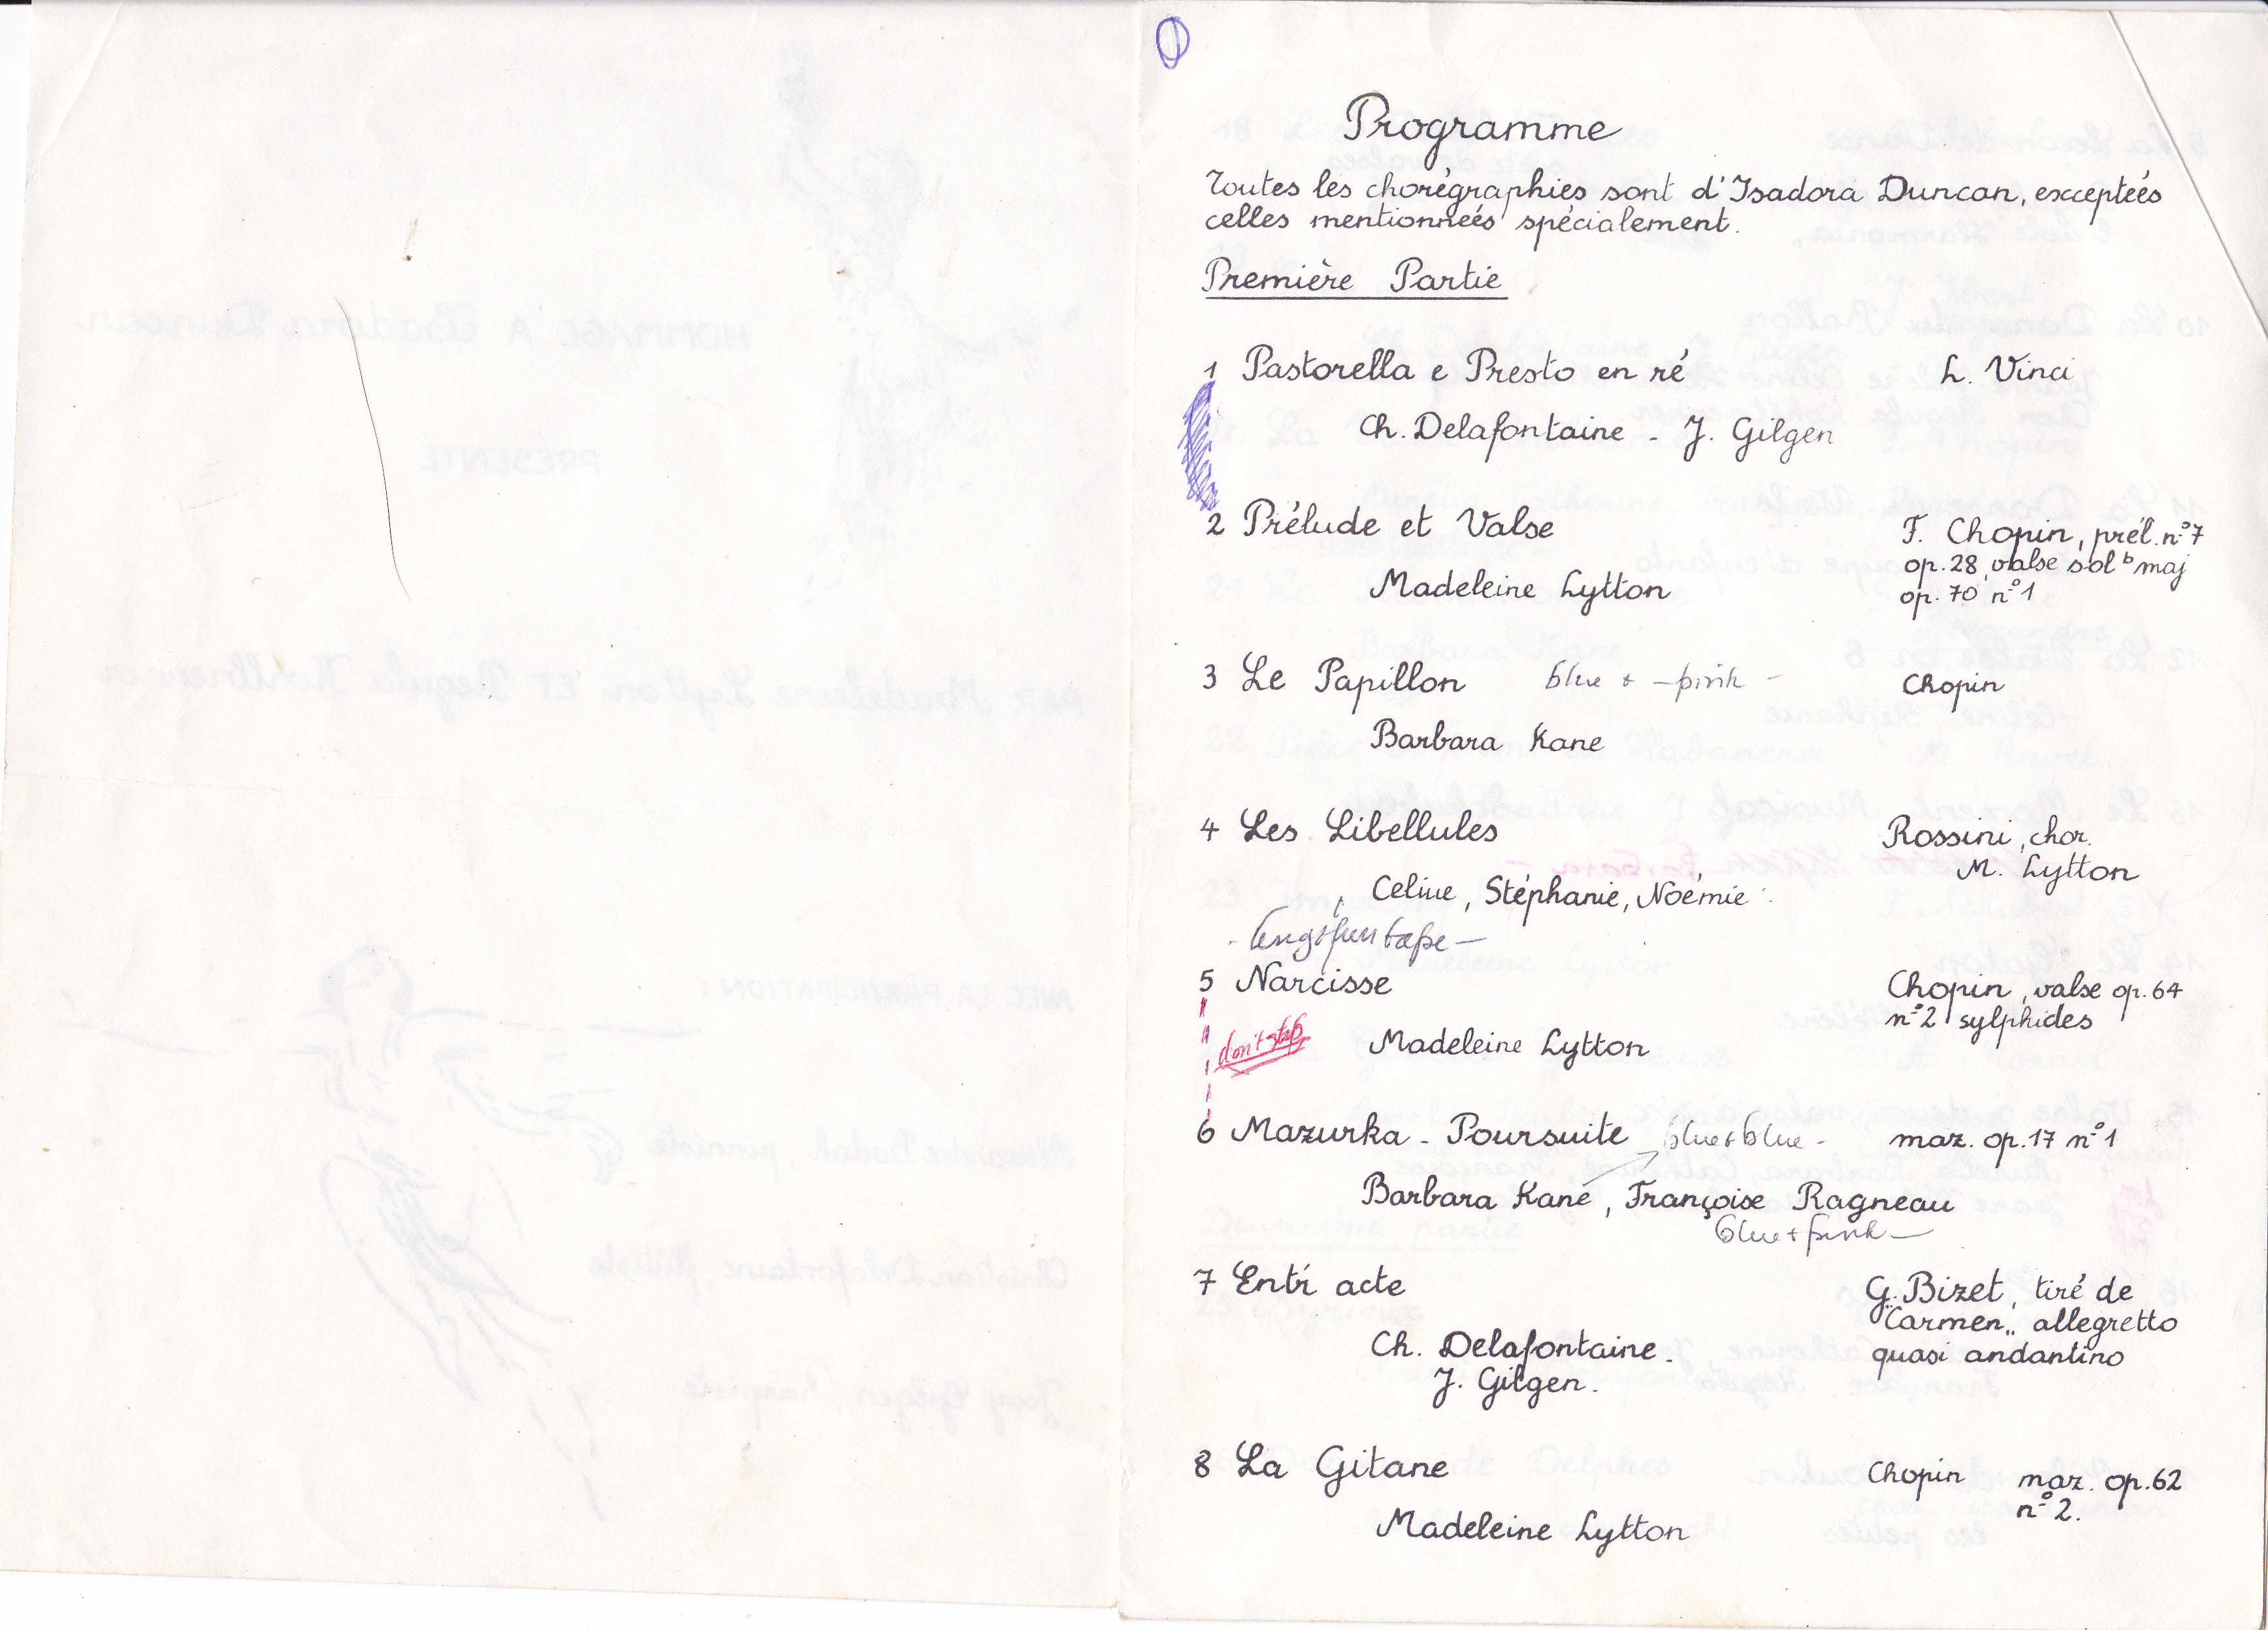 Programme
Toutes les chorégraphies sont d'Isadora Duncan, exceptées
celles mentionneés spécialement.
Première Partie
1 Pastorella e Presto en ré L. Vinci
Ch. Delafontaine - J. Gilgen
2 Prélude et Valse F. Chopin, prél. n°7
op. 28, valse sol b maj
Madeleine Lytton op. 70 n°1
3 Le Papillon blue + - pink - Chopin
Barbara Kane
4 Les Libellules Rossini, chor.
M. Lytton
Celine, Stéphanie, Noémie
tape -
5 Narcisse Chopin, valse op. 64
n°2 sylphides
don't stop Madeleine Lytton
6 Mazurka - Poursuite blue + blue - maz. op. 17 n°1
Barbara Kane, Françoise Ragneau
blue + pink -
7 Entr'acte G. Bizet, tiré de
"Carmen" allegretto
Ch. Delafontaine - quasi andantino
J. Gilgen.
8 La Gitane Chopin maz. op. 62
n°2.
Madeleine Lytton
HOMMAGE A Isadora Duncan
PRÉSENTÉ
PAR Madeleine Lytton ET Regula Kohlbrenner
AVEC LA PARTICIPATION :
Alexandre Bodak, pianiste
Christian Delafontaine, flûtiste
Josy Gilgen, harpiste